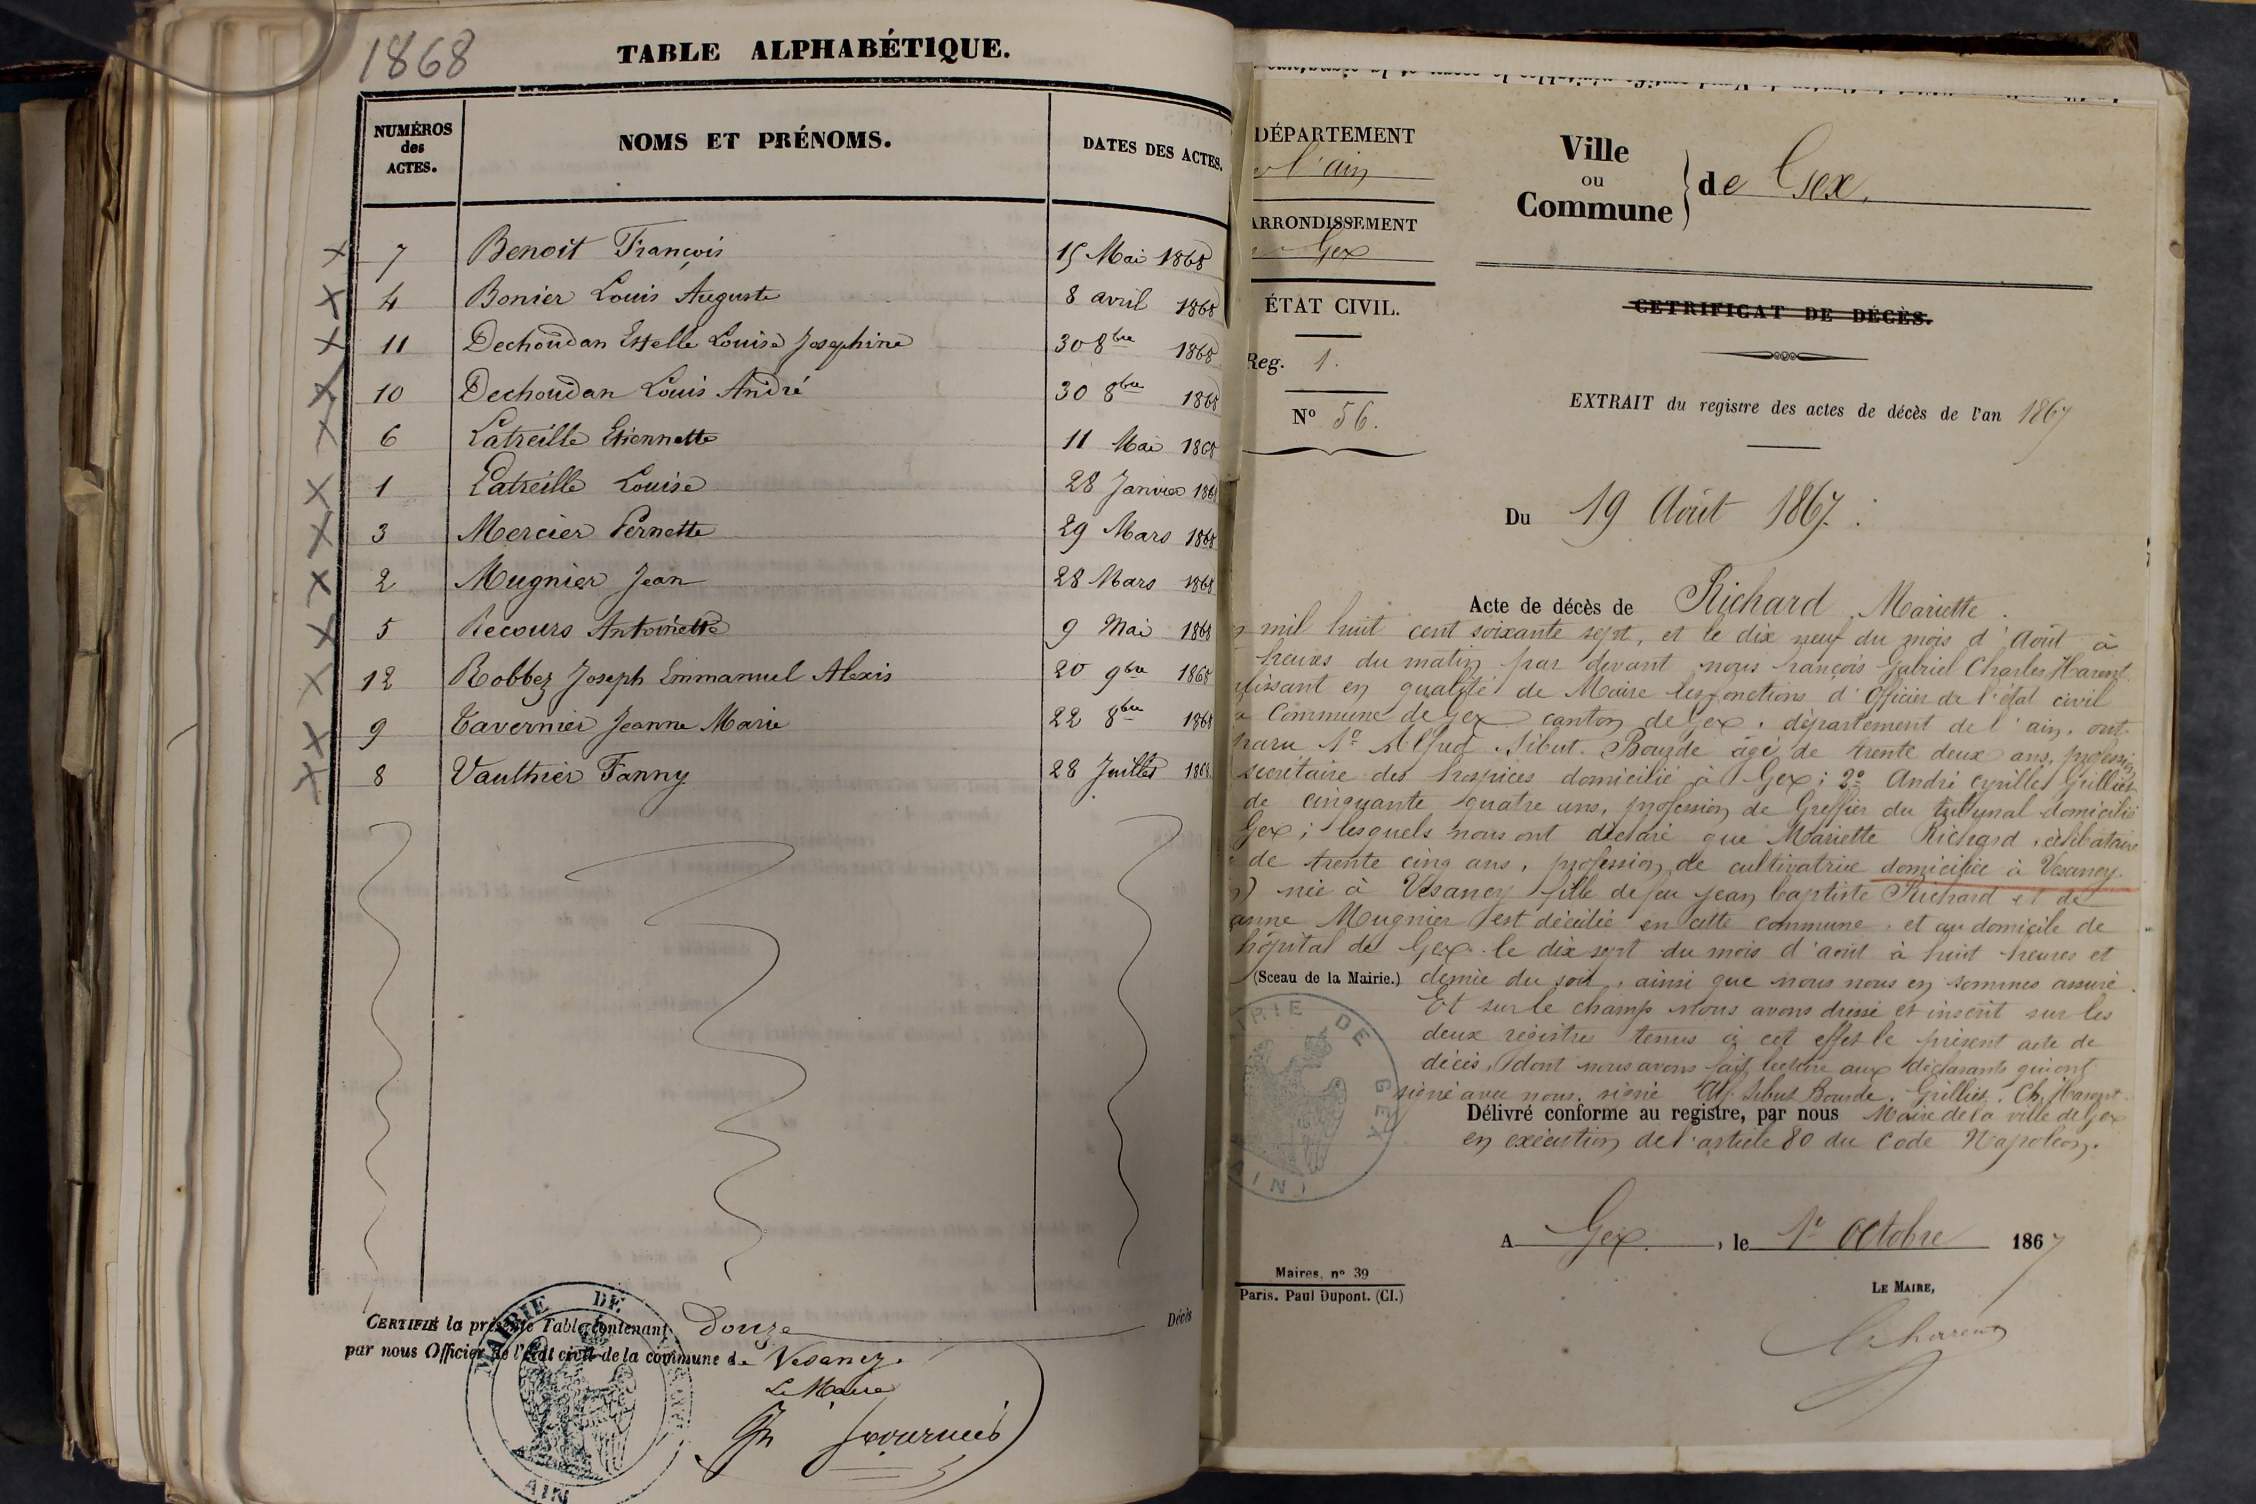 1868
TABLE ALPHABÉTIQUE.
NUMÉROS des ACTES.
NOMS ET PRÉNOMS.
DATES DES ACTES.
X 7 Benoit François 15 Mai 1868
X 4 Bonier Louis Auguste 8 avril 1868
X 11 Dechoudan Estelle Louise Josephine 30 8bre 1868
X 10 Dechoudan Louis André 30 8bre 1868
X 6 Latreille Etiennette 11 Mai 1868
X 1 Latreille Louise 28 Janvier 1868
X 3 Mercier Pernette 29 Mars 1868
X 2 Mugnier Jean 28 Mars 1868
X 5 Recours Antoinette 9 Mai 1868
X 12 Robbez Joseph Emmanuel Alexis 20 9bre 1868
X 9 Tavernier Jeanne Marie 22 8bre 1868
X 8 Vauthier Fanny 28 Juillet 1868
CERTIFIÉ la présente Table contenant douze Décès
par nous Officier de l'état civil de la commune de Vesancy.
Le Maire
MAIRIE DE
AIN
DÉPARTEMENT
l'ain
ARRONDISSEMENT
Gex
ÉTAT CIVIL.
Reg. 1.
No 56.
Ville ou Commune de Gex.
CETRIFICAT DE DÉCÈS.
EXTRAIT du registre des actes de décès de l'an 1867
Du 19 Août 1867.
Acte de décès de Richard Mariette.
mil huit cent soixante sept, et le dix neuf du mois d'Août à
heures du matin par devant nous François Gabriel Charles Harent
plissant en qualité de Maire les fonctions d'officier de l'état civil
Commune de Gex canton de Gex, département de l'ain, ont
paru 1o Alfred Sibut Bourde âgé de trente deux ans, profession
secrétaire des hospices domicilié à Gex; 2o André Cyrille Grilliet
de cinquante quatre ans, profession de Greffier du tribunal domicilié
Gex; lesquels nous ont déclaré que Mariette Richard, célibataire
de trente cinq ans, profession de cultivatrice domiciliée à Vesancy.
née à Vesancy fille de feu Jean baptiste Richard et de
anne Mugnier est décédée en cette commune, et au domicile de
hôpital de Gex le dix sept du mois d'août à huit heures et
(Sceau de la Mairie.) demie du soir, ainsi que nous nous en sommes assuré.
Et sur le champ nous avons dressé et inscrit sur les
deux registres tenus à cet effet le présent acte de
décès, dont nous avons fait lecture aux déclarants qui ont
signé avec nous. signé Alf. Sibut Bourde, Grilliet, Ch. Harent
Délivré conforme au registre, par nous Maire de la ville de Gex
en exécution de l'article 80 du Code Napoléon.
MAIRIE DE GEX
AIN
A Gex, le 1er Octobre 1867
Maires, no 39
Paris. Paul Dupont. (Cl.)
LE MAIRE,